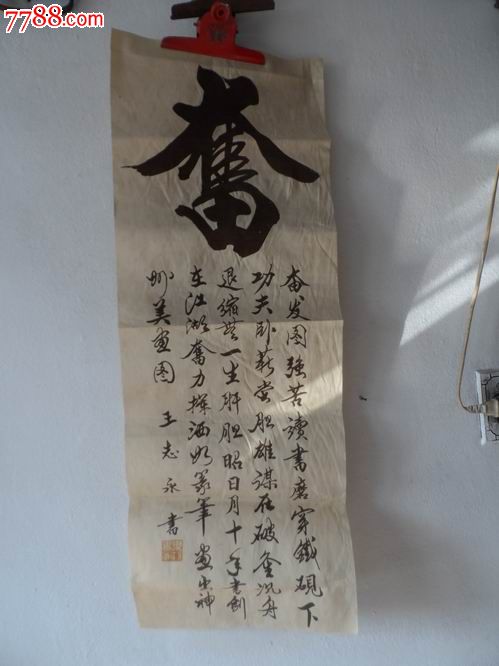 7788.com
奮
奋发图强苦讀書磨穿鐵硯下
功夫卧薪尝胆雄谋在破釜沉舟
退缩无一生肝胆昭日月十年书剑
在江湖奮力揮洒如筆画出神
州美画图 王志永書